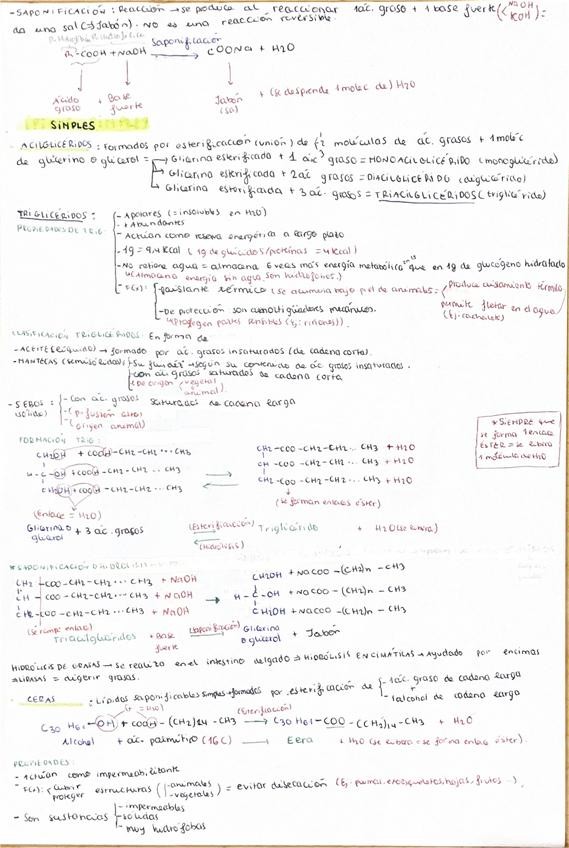 -SAPONIFICACIÓN: Reacción → se produce al reaccionar 1ác. graso + 1 base fuerte (NaOH KOH) =
da una sal (→ Jabón). NO es una reacción reversible.
R-COOH + NaOH Saponificación → COONa + H2O
Ácido graso + Base fuerte Jabón (sal) + (se desprende 1 molec de) H2O
SIMPLES
- ACILGLICÉRIDOS: Formados por esterificación (unión) de moléculas de ác. grasos + 1 molec
de glicerina o glicerol = → Glicerina esterificada + 1 ác graso = MONOACILGLICÉRIDO (monoglicérido)
→ Glicerina esterificada + 2ác grasos = DIACILGLICÉRIDO (diglicérido)
→ Glicerina esterificada + 3 ác. grasos = TRIACILGLICÉRIDOS (triglicérido)
TRIGLICÉRIDOS:
PROPIEDADES DE TRIG:
- Apolares (= insolubles en H2O)
- + Abundantes
- Actúan como reserva energética a largo plazo
- 1g = 9,4 Kcal (1g de glúcidos/proteínas = 4 Kcal)
- No retiene agua = almacena 6 veces más energía metabólica que en 1g de glucógeno hidratado
(Almacena energía sin agua, son hidrófobos.)
- F(x): - Aislante térmico (se acumula bajo piel de animales =
Produce aislamiento térmico
permite flotar en el agua)
(Ej: cachalote)
- De protección son amortiguadores mecánicos.
(Protegen partes sensibles (Ej: riñones)).
CLASIFICACIÓN TRIGLICÉRIDOS: En forma de
- ACEITE (líquido) → formado por ác. grasos insaturados (de cadena corta).
- MANTECAS (semisólidas) - su fusión → según su contenido de ác grasos insaturados.
- con ác. grasos saturados de cadena corta
- De origen vegetal animal
- SEBOS: (sólido)
- Con ác. grasos saturados de cadena larga
- (P. fusión alto)
- (origen animal)
* SIEMPRE que
se forma 1 enlace
ESTER = se libera
1 molécula de H2O
FORMACIÓN TRIG:
CH2OH + COOH-CH2-CH2 ... CH3 CH2-COO-CH2-CH2 ... CH3 + H2O
H-C-OH + COOH-CH2-CH2 ... CH3 CH-COO-CH2-CH2 ... CH3 + H2O
CH2OH + COOH-CH2-CH2 ... CH3 CH2-COO-CH2-CH2 ... CH3 + H2O
(Enlace = H2O) (Se forman enlaces éster)
Glicerina o glicerol + 3 ác. grasos (Esterificación) (Hidrólisis) Triglicérido + H2O (se libera)
* SAPONIFICACIÓN O HIDRÓLISIS
CH2-COO-CH2-CH2 ... CH3 + NaOH CH2OH + NaCOO-(CH2)n-CH3
CH-COO-CH2-CH2 ... CH3 + NaOH → H-C-OH + NaCOO-(CH2)n-CH3
CH2-COO-CH2-CH2 ... CH3 + NaOH CH2OH + NaCOO-(CH2)n-CH3
(Se rompe enlace)
Triacilglicéridos + Base fuerte (Saponificación) Glicerina o glicerol + Jabón
HIDRÓLISIS DE GRASAS → Se realiza en el intestino delgado ⇒ HIDRÓLISIS ENCIMÁTICAS → Ayudado por encimas
= LIPASAS = digerir grasas.
- CERAS: Lípidos saponificables simples → formados por esterificación de - 1 ác. graso de cadena larga
+
- 1 alcohol de cadena larga
C30 H61-OH + COOH-(CH2)14-CH3 (Esterificación) → C30 H61-COO-(CH2)14-CH3 + H2O
Alcohol + ác. palmítico (16C) → Cera + H2O (se libera = se forma enlace éster).
PROPIEDADES:
- Actúan como impermeabilizante
- F(x): cubrir proteger estructuras (- animales - vegetales) = evitar desecación (Ej. plumas, exoesqueletos, hojas, frutos...).
- Son sustancias - impermeables
- sólidas
- muy hidrófobas